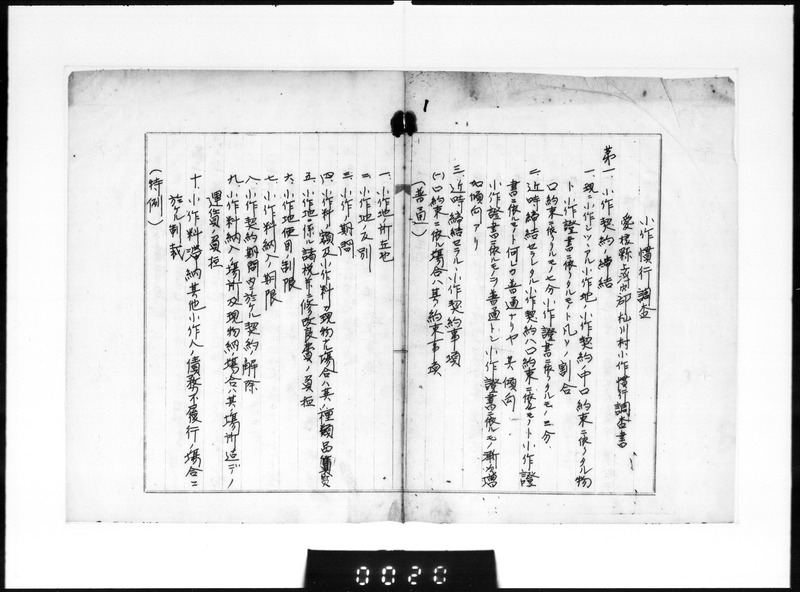 小作慣行調査
愛媛縣 郡 川村小作慣行調査書
第一、小作契約ノ締結
一、現ニ小作シツヽアル小作地ノ小作契約ノ中口約束ニ依リタル物
ト小作證書ニ依リタルモノト凡ソノ割合
口約束ニ依リタルモノ七分小作證書ニ依リタルモノ三分
二、近時締結セラレタル小作契約ハ口約束ニ依ルモノト小作證
書ニ依ルモノト何レカ普通ナリヤ 其ノ傾向
小作證書ニ依ルモノヲ普通トシ小作證書ニ依ルモノ漸次增
加傾向アリ
三、近時締結セラルヽ小作契約ノ事項
(一)口約束ニ依ル場合ハ其ノ約束事項
(普通)
一、小作地ノ所在地
二、小作地ノ反別
三、小作ノ期間
四、小作料ノ額及小作料カ現物ナル場合ハ其ノ種類品質
五、小作地ニ係ル諸税 修 改良費ノ負担
六、小作地使用ノ制限
七、小作料納入ノ期限
八、小作契約期間内ニ於ケル契約ノ解除
九、小作料納入ノ場所及現物納ノ場合ハ其ノ場所迄デノ
運賃ノ負担
十、小作料ノ滞納其他小作人ノ債務不履行ノ場合ニ
於ケル制裁
(特例)
0020